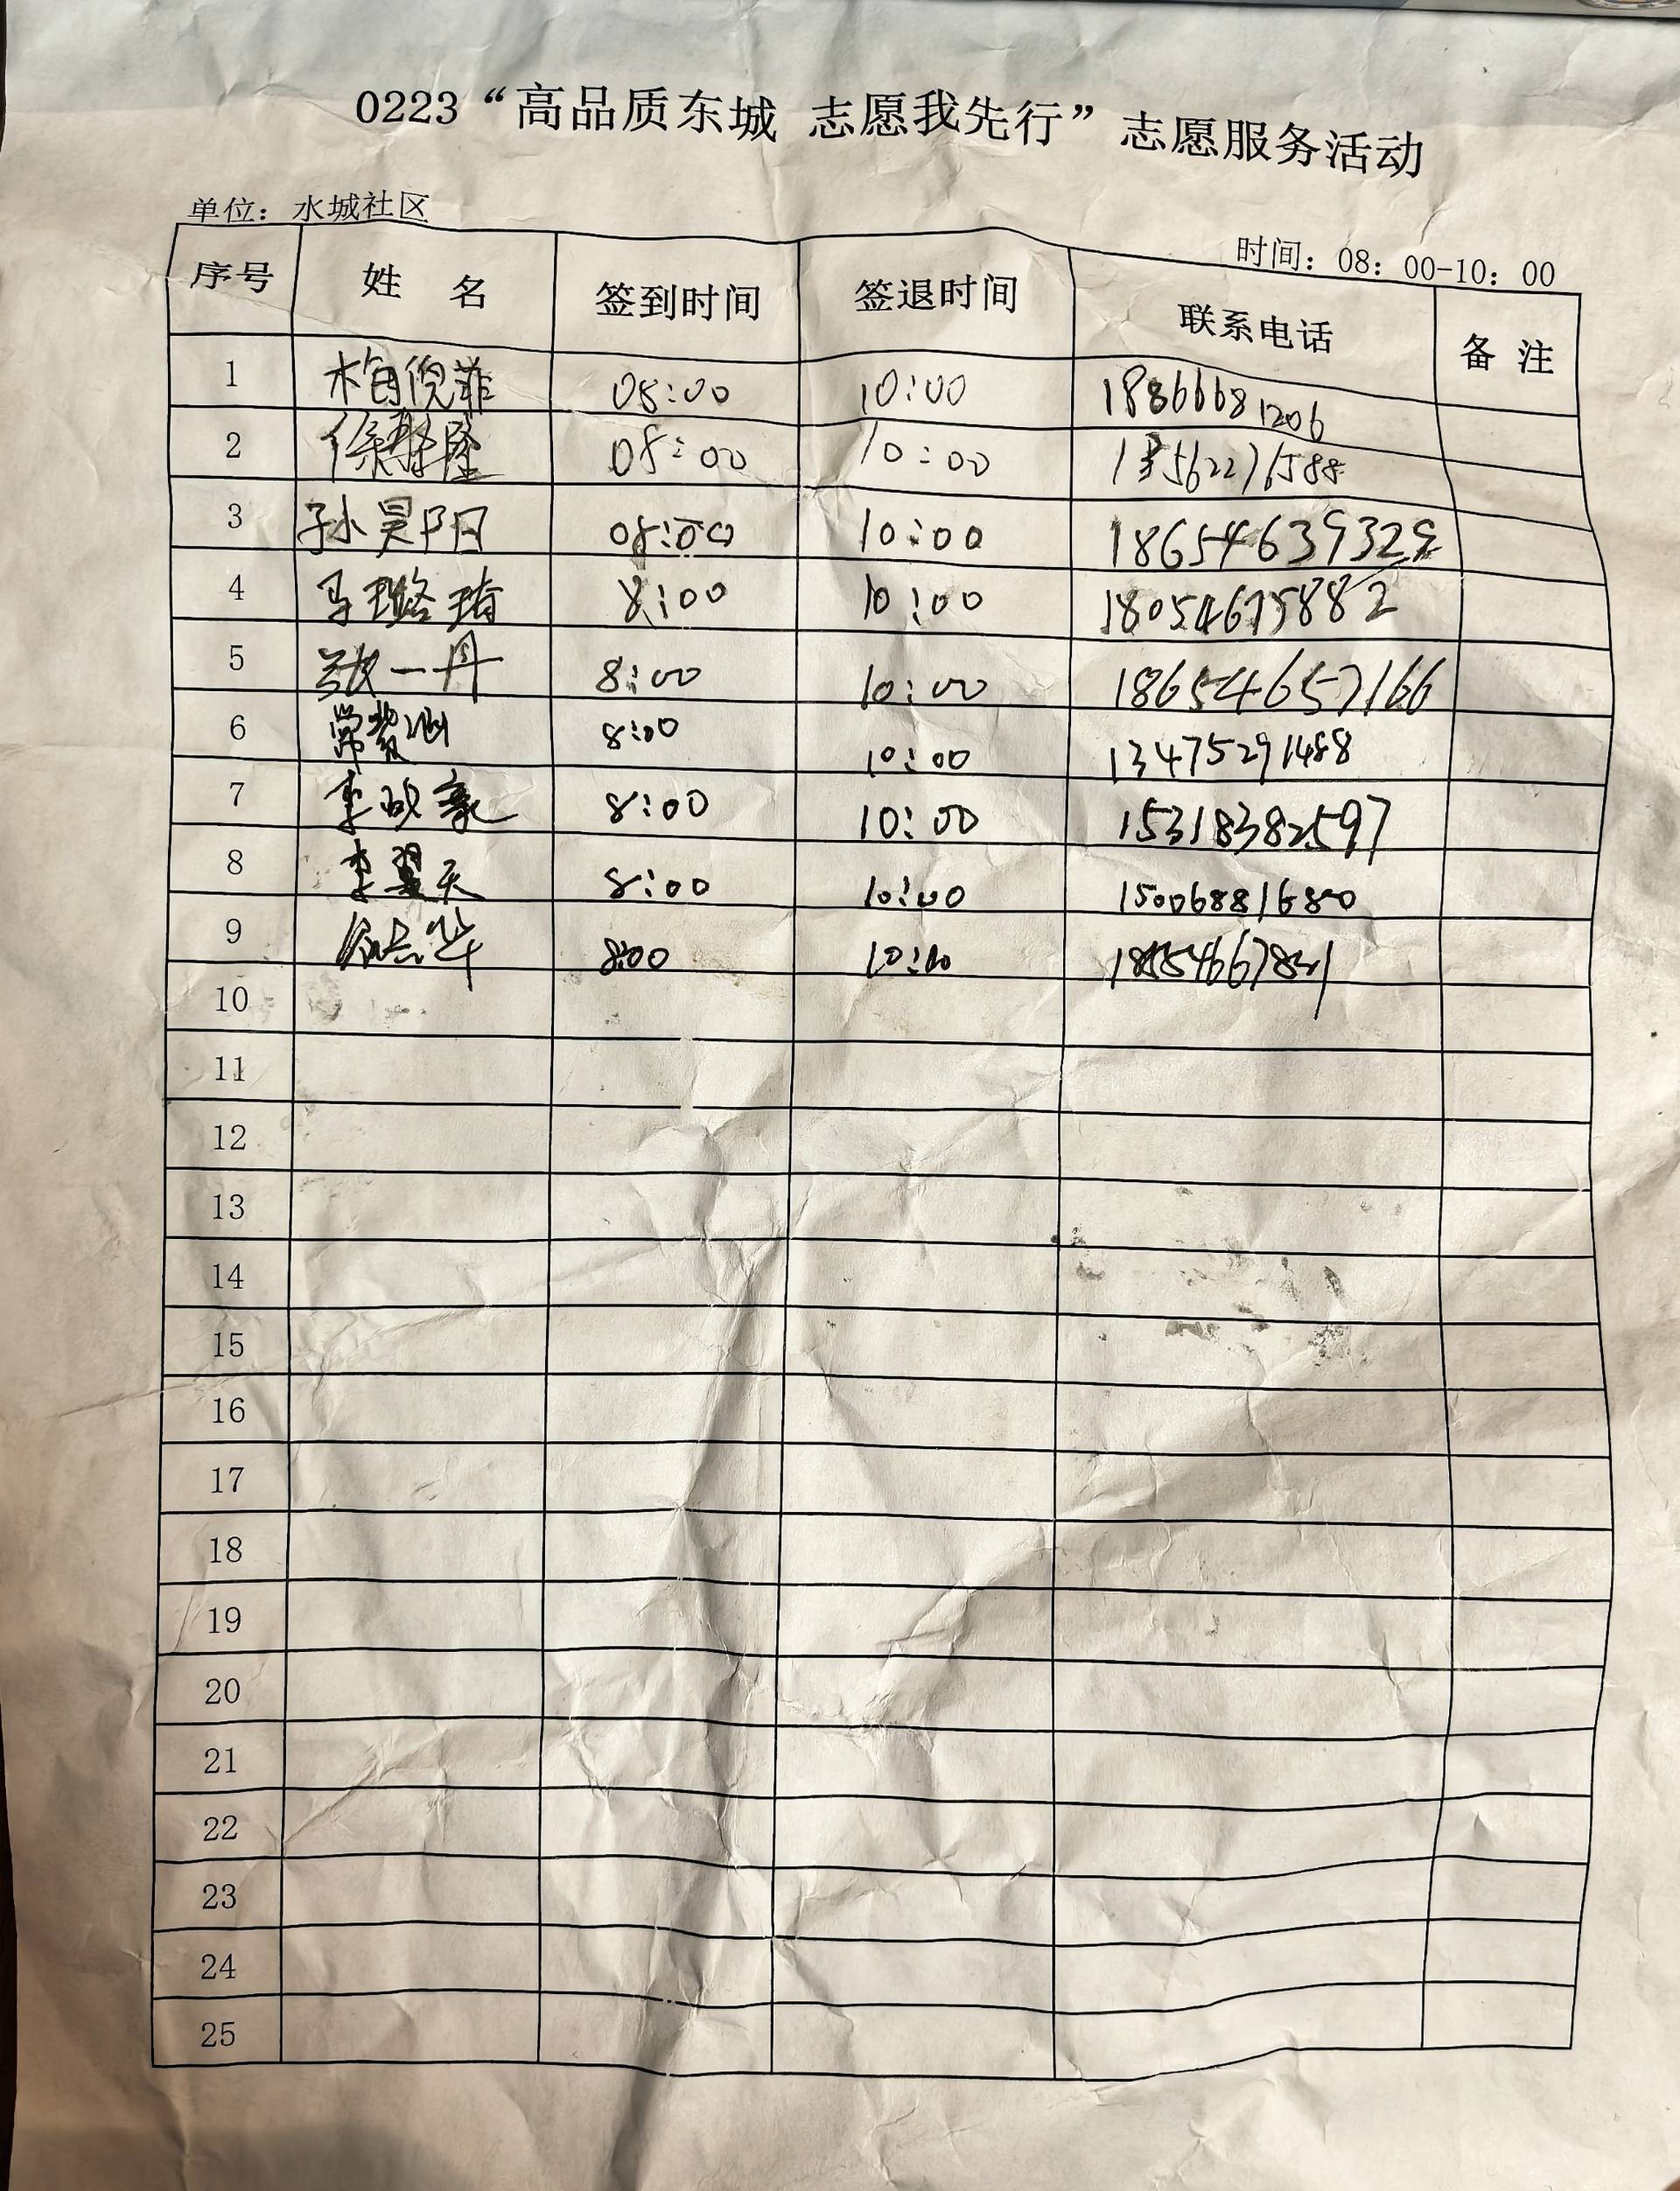 0223“高品质东城 志愿我先行”志愿服务活动
单位：水城社区
时间：08：00-10：00
序号 姓 名 签到时间 签退时间 联系电话 备 注
1 柏倪菲 08:00 10:00 18866681206
2 徐 08:00 10:00 13562276588
3 孙昊阳 08:00 10:00
4 马璐琦 8:00 10:00 18054675882
5 张一丹 8:00 10:00 18654657166
6 常 8:00 10:00 13475291488
7 李 8:00 10:00 15318382597
8 李翼天 8:00 10:00 15006881680
9 8:00 10:00
10
11
12
13
14
15
16
17
18
19
20
21
22
23
24
25